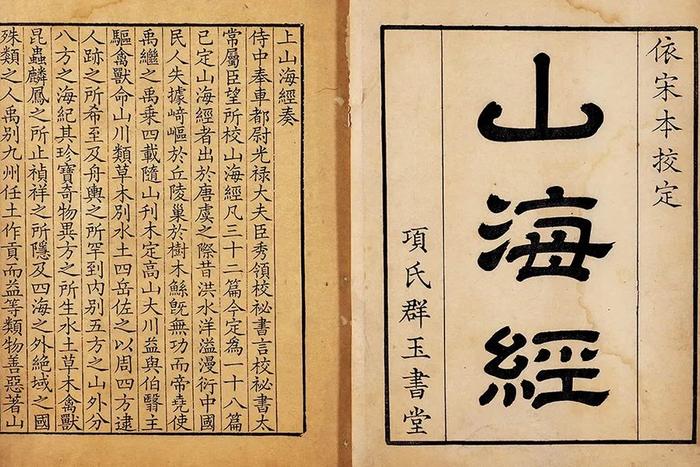 依宋本挍定
山海經
項氏群玉書堂
上山海經奏
侍中奉車都尉光禄大夫臣秀領挍祕書言挍祕書太
常屬臣望所挍山海經凡三十二篇今定爲一十八篇
已定山海經者出於唐虞之際昔洪水洋溢漫衍中國
民人失據崎嶇於丘陵巢於樹木鯀旣無功而帝堯使
禹繼之禹乘四載隨山刋木定高山大川益與伯翳主
驅禽獸命山川類草木別水土四岳佐之以周四方逮
人跡之所希至及舟輿之所罕到内別五方之山外分
八方之海紀其珍寶奇物異方之所生水土草木禽獸
昆蟲麟鳳之所止禎祥之所隱及四海之外絶域之國
殊類之人禹別九州任土作貢而益等類物善惡著山